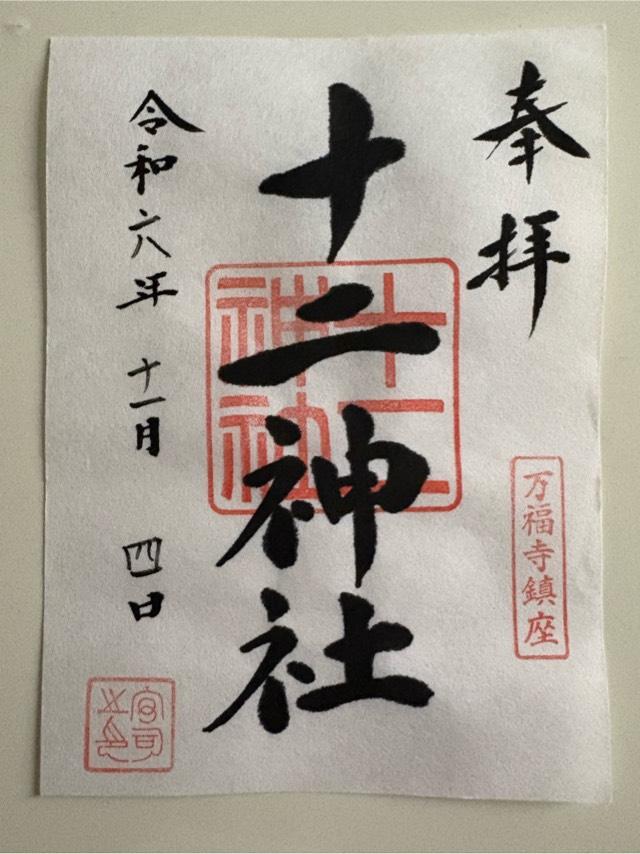 奉拝
万福寺鎮座
十二神社
十二
神社
令和六年 十一月 四日
宮司
之印